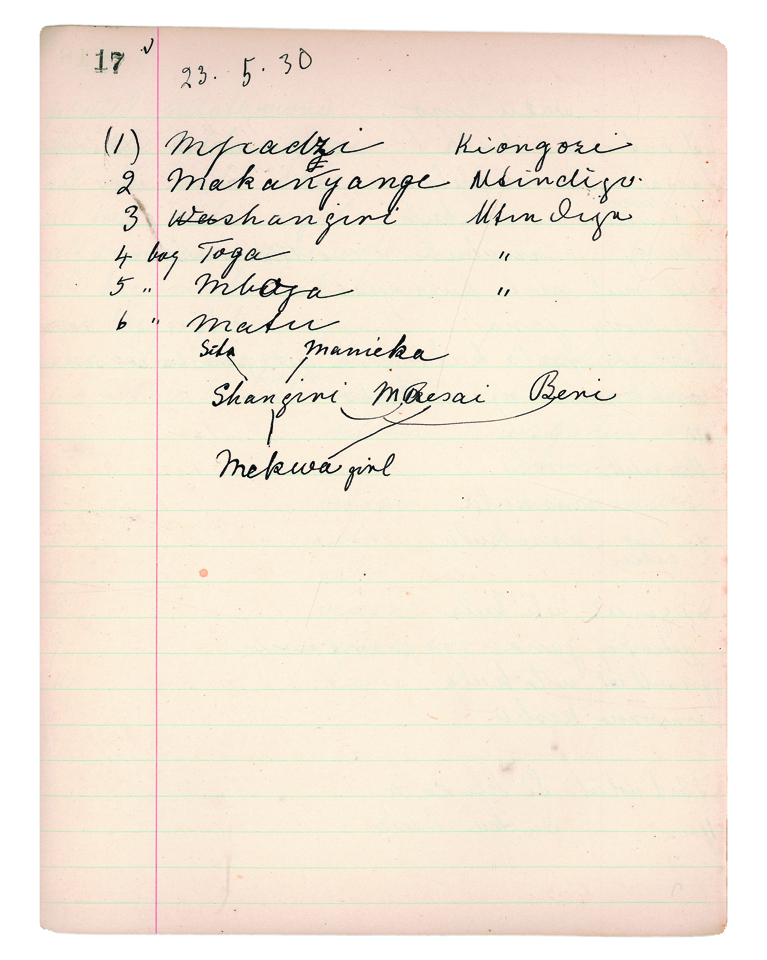 17 23. 5. 30
(1) Mpadzi Kiongozi
2 Makanyange Mtindiga
3 Washangiri Mtindiga
4 boy Toga "
5 " Mboga "
6 " Matu
Sita Manieka
Shangiri Maesai Beni
Mekwa girl